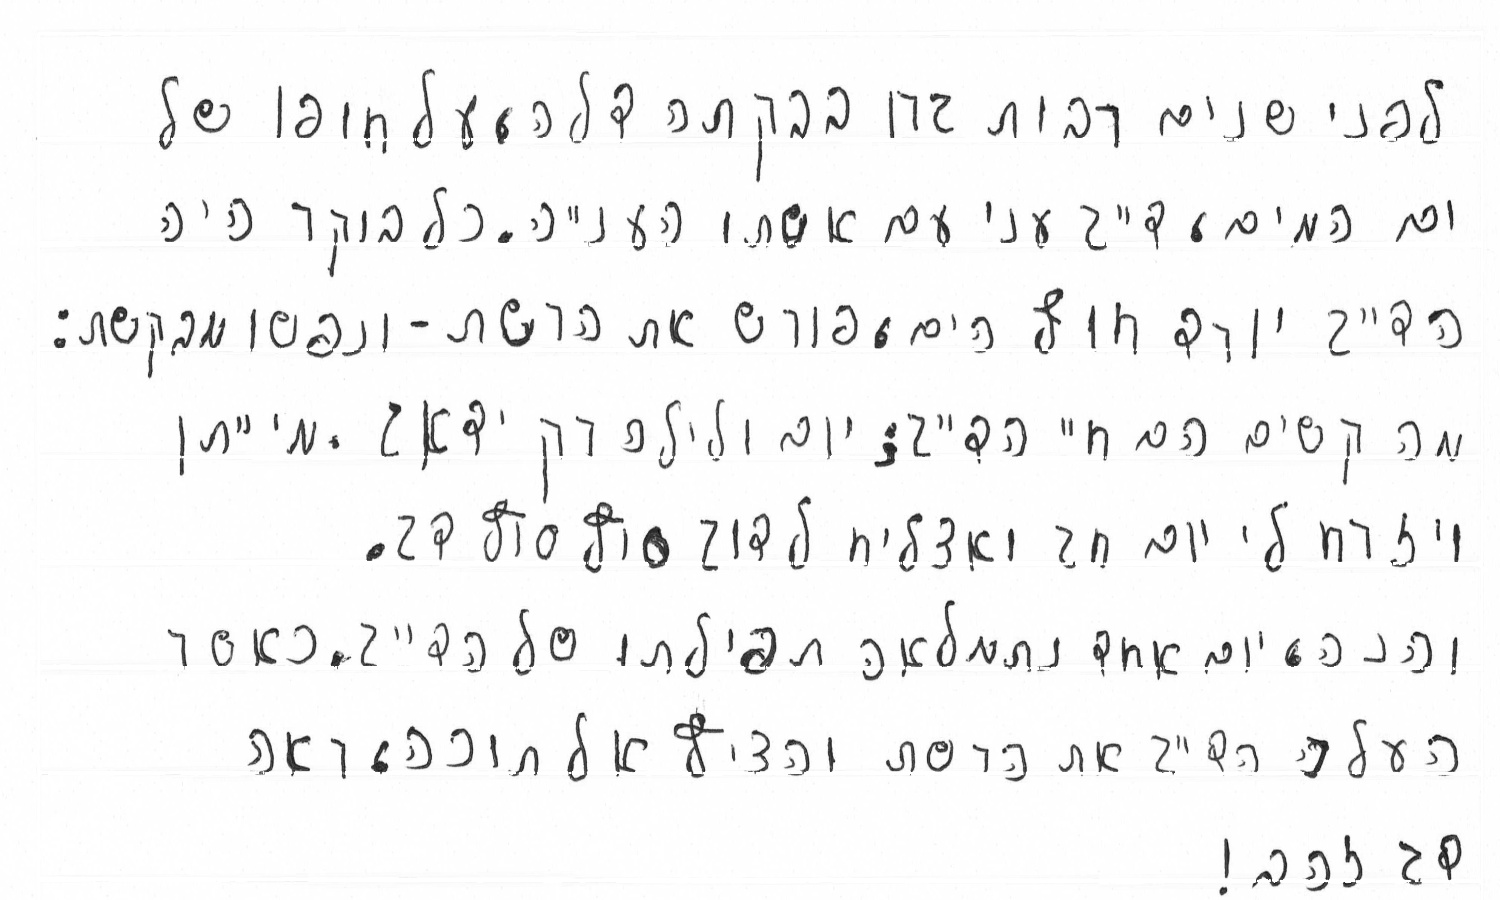 לפני שנים רבות גרו בבקתה דלה, על חופו של
ום המים, דייג עני עם אשתו הענייה. כל בוקר היה
הדייג יורד חוף הים, פורש את הרשת - ונפשו מבקשת:
מה קשים הם חיי הדייג; יום ולילה רק ידאג. מי ייתן
ויזרח לי יום חג ואצליח לדוג סוף סוף דג.
והנה, יום אחד נתמלאה תפילתו של הדייג. כאשר
העלה הדייג את הרשת והציף אל תוכה, ראה
דג זהב!